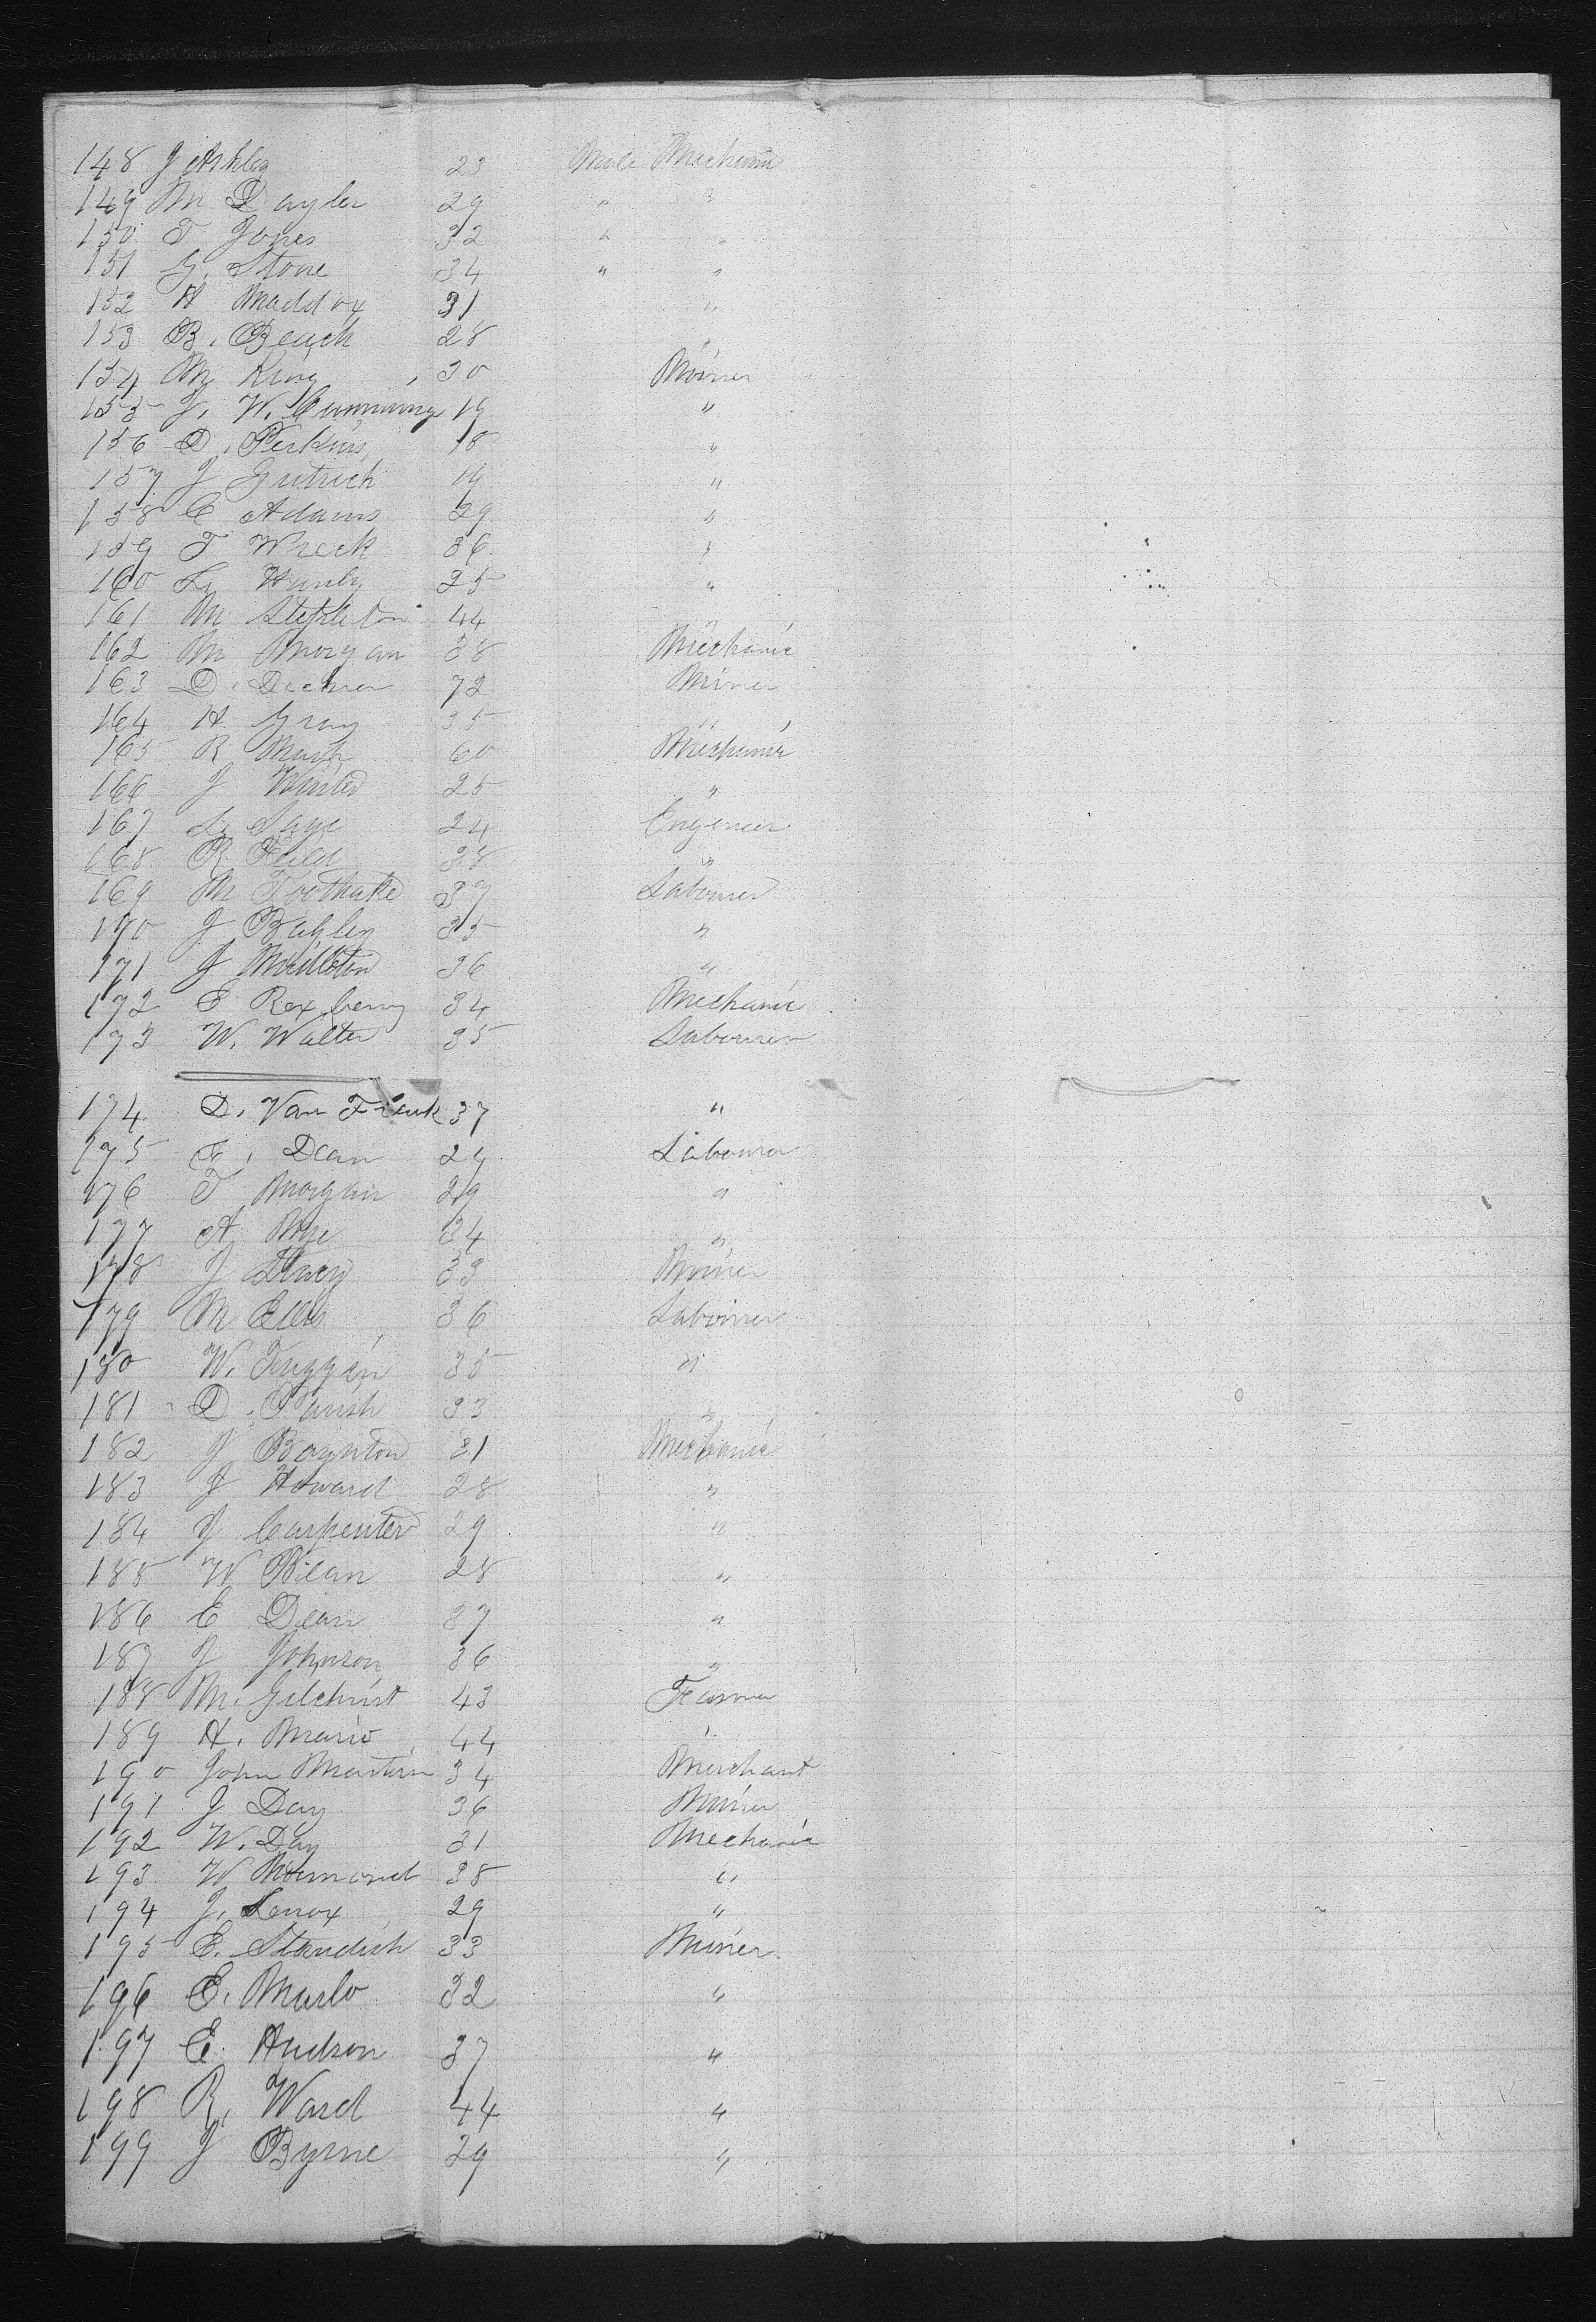 148 J Ashley 23 Male Mechanic
149 M Dayler 29 " "
150 T Jones 32 " "
151 G. Stone 34 " "
152 H Maddox 31 "
153 B. Beach 28 "
154 M King 30 Miner
155 J. W. Cummings 19 "
156 D. Perkins, 18 "
157 J Gutrich 19 "
158 C Adams 29 "
159 T Wreck 36 "
160 L. Hunly 25 "
161 M Stepleton 44 "
162 M Morgan 38 Mechanic
163 D. 72 Miner
164 H Gray 35 "
165 R Mash 60 Mechanic
166 J Winter 25 "
167 L. Sage 24 Engeneer
168 R Field 38 "
169 M Toothake 37 Labourer
170 J Bagley 35 "
171 J Middleton 36 "
172 E Roxberry 34 Mechanic
173 W. Walter 35 Labourer
174 D. Van Frank 37 "
175 E. Dean 29 Labourer
176 T Morgan 29 "
177 A Mye 34 "
178 J 33 Miner
179 M Ellis 36 Labourer
180 W. Fruggan 35 "
181 D. Parish 33 "
182 J Boynton 31 Mechanic
183 J Howard 28 "
184 J Carpenter 29 "
185 W Bilan 28 "
186 E Dean 37 "
187 J Johnson 36 "
188 M. Gilchrist 43 Farmer
189 H. Mario 44 "
190 John Martin 34 Merchant
191 J Day 36 Miner
192 W. Day 31 Mechanic
193 W 38 "
194 J. Lenox 29 "
195 E. Standish 33 Miner
196 E. Marlo 32 "
197 E. Hudson 37 "
198 R. Ward 44 "
199 J Byrne 29 "